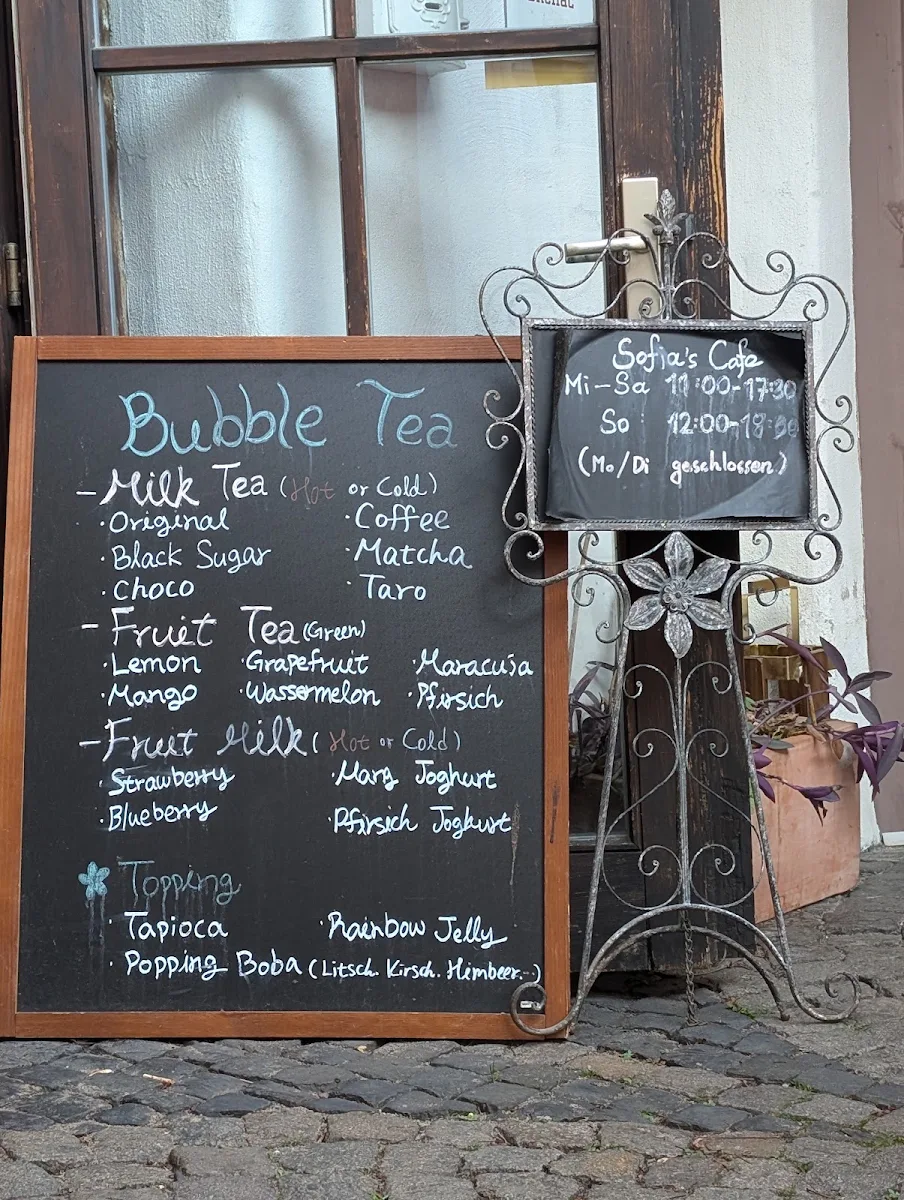 Bubble Tea
- Milk Tea (Hot or Cold)
· Original · Coffee
· Black Sugar · Matcha
· Choco · Taro
- Fruit Tea (Green)
· Lemon · Grapefruit · Maracuja
· Mango · Wassermelon · Pfirsich
- Fruit Milk (Hot or Cold)
· Strawberry · Mang Joghurt
· Blueberry · Pfirsich Joghurt
Topping
· Tapioca · Rainbow Jelly
· Popping Boba (Litsch. Kirsch. Himbeer...)
Sofia's Cafe
Mi-Sa 11:00-17:30
So 12:00-18:00
(Mo/Di geschlossen)